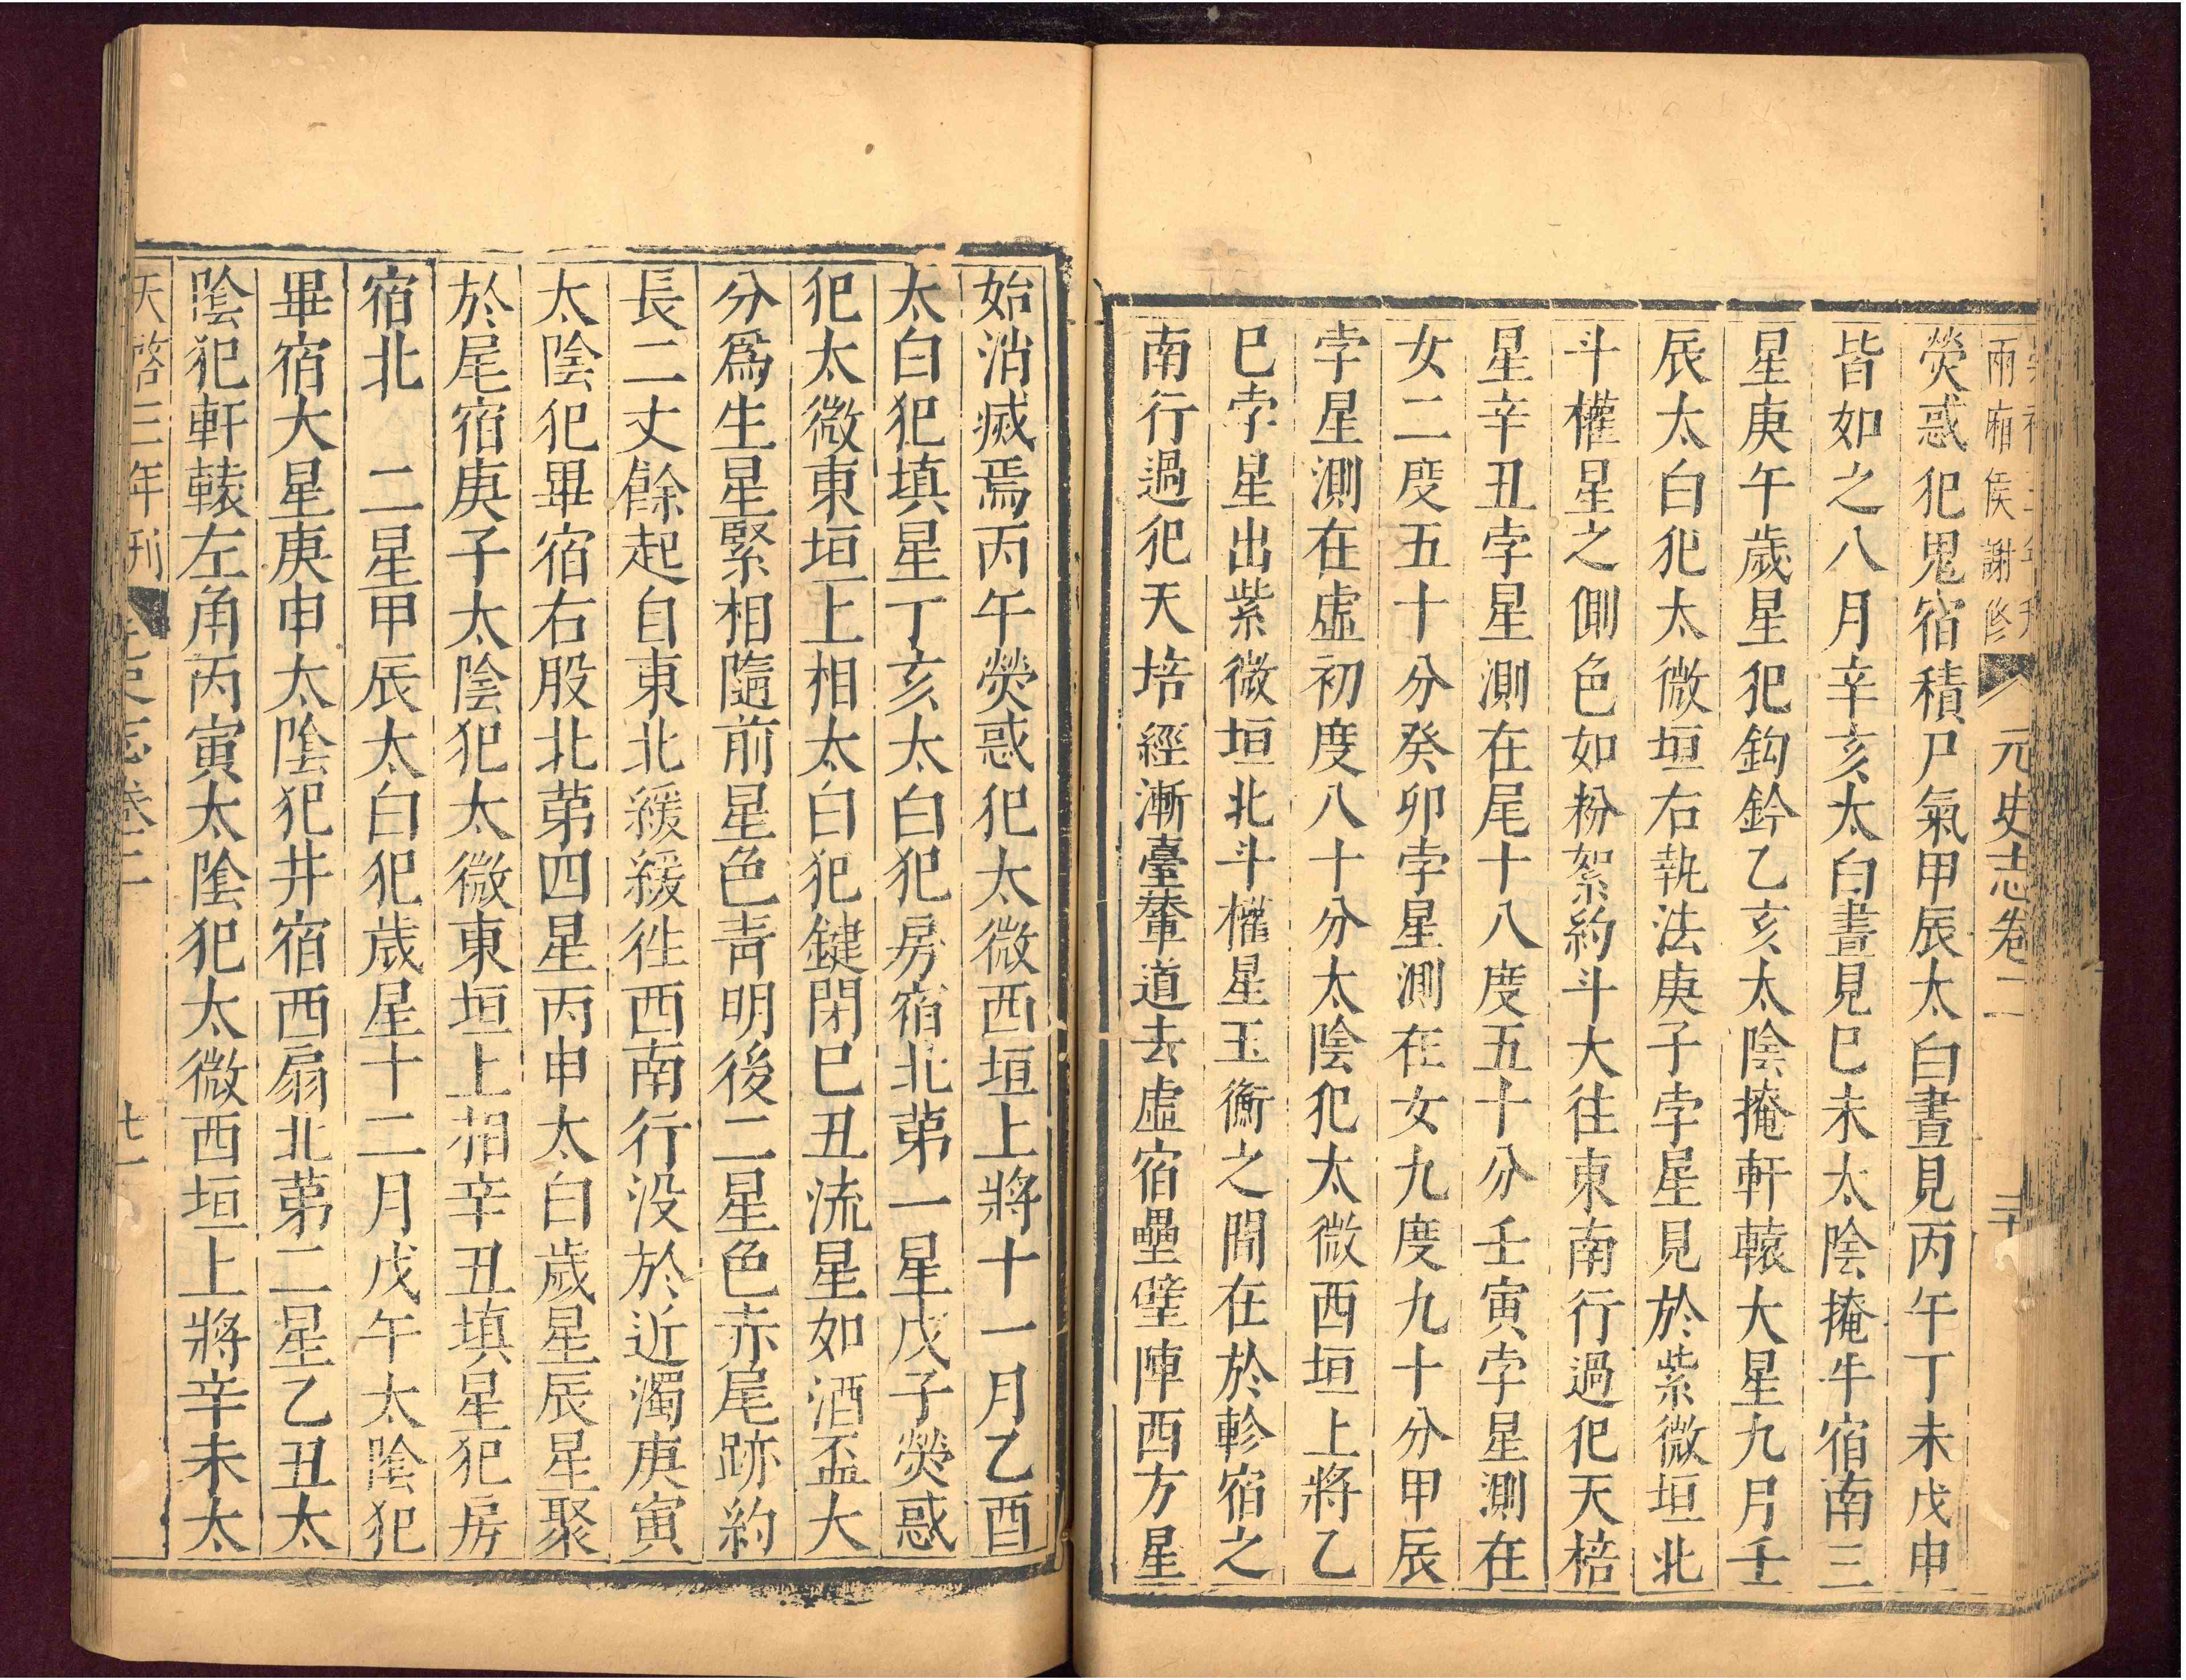 兩廂侯謝修 元史志卷二 三十
熒惑犯鬼宿積尸氣甲辰太白晝見丙午丁未戊申
皆如之八月辛亥太白晝見巳未太陰掩牛宿南三
星庚午歲星犯鈎鈐乙亥太陰掩軒轅大星九月壬
辰太白犯太微垣右執法庚子孛星見於紫微垣北
斗權星之側色如粉絮約斗大徃東南行過犯天棓
星辛丑孛星測在尾十八度五十分壬寅孛星測在
女二度五十分癸卯孛星測在女九度九十分甲辰
孛星測在虛初度八十分太陰犯太微西垣上將乙
巳孛星出紫微垣北斗權星玉衡之間在於軫宿之
南行過犯天培經漸臺輦道去虛宿壘壁陣西方星
始消滅焉丙午熒惑犯太微西垣上將十一月乙酉
太白犯填星丁亥太白犯房宿北苐一星戊子熒惑
犯太微東垣上相太白犯鍵閉巳丑流星如酒盃大
分爲生星緊相隨前星色青明後二星色赤尾跡約
長二丈餘起自東北緩緩徃西南行没於近濁庚寅
太陰犯畢宿右股北苐四星丙申太白歲星辰星聚
於尾宿庚子太陰犯太微東垣上相辛丑填星犯房
宿北 二星甲辰太白犯歲星十二月戊午太陰犯
畢宿大星庚申太陰犯井宿西扇北苐二星乙丑太
陰犯軒轅左角丙寅太陰犯太微西垣上將辛未太
天啓三年刊 元史志卷二 七一